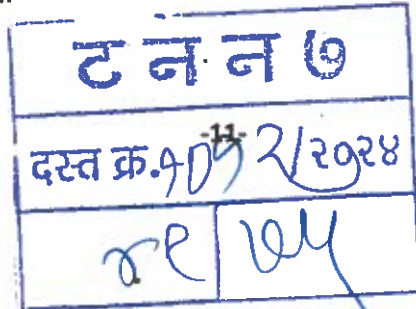 ट न न ७
-11-
दस्त क्र. १०५२/२०२४
४९ ७५